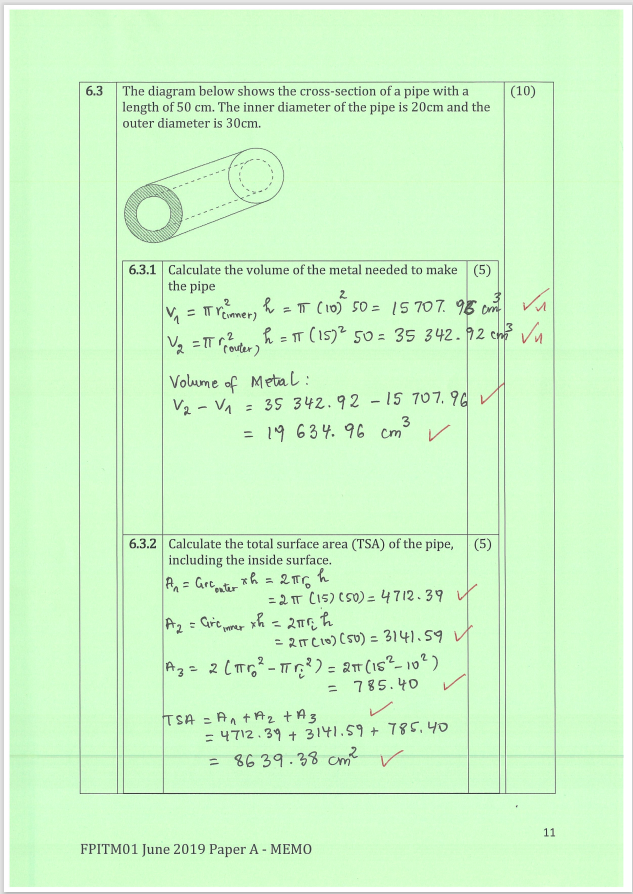 6.3 The diagram below shows the cross-section of a pipe with a (10)
length of 50 cm. The inner diameter of the pipe is 20cm and the
outer diameter is 30cm.
6.3.1 Calculate the volume of the metal needed to make (5)
the pipe
V₁ = πr²(inner) h = π (10)² 50 = 15 707.96 cm³ ✓✓
V₂ = πr²(outer) h = π (15)² 50 = 35 342.92 cm³ ✓✓
Volume of Metal :
V₂ – V₁ = 35 342.92 – 15 707.96 ✓
= 19 634.96 cm³ ✓
6.3.2 Calculate the total surface area (TSA) of the pipe, (5)
including the inside surface.
A₁ = Circ outer × h = 2πr₀ h
= 2π (15) (50) = 4712.39 ✓
A₂ = Circ inner × h = 2πrᵢ h
= 2π (10) (50) = 3141.59 ✓
A₃ = 2 (πr₀² – πrᵢ²) = 2π (15² – 10²)
= 785.40 ✓
TSA = A₁ + A₂ + A₃ ✓
= 4712.39 + 3141.59 + 785.40
= 8639.38 cm² ✓
11
FPITM01 June 2019 Paper A - MEMO